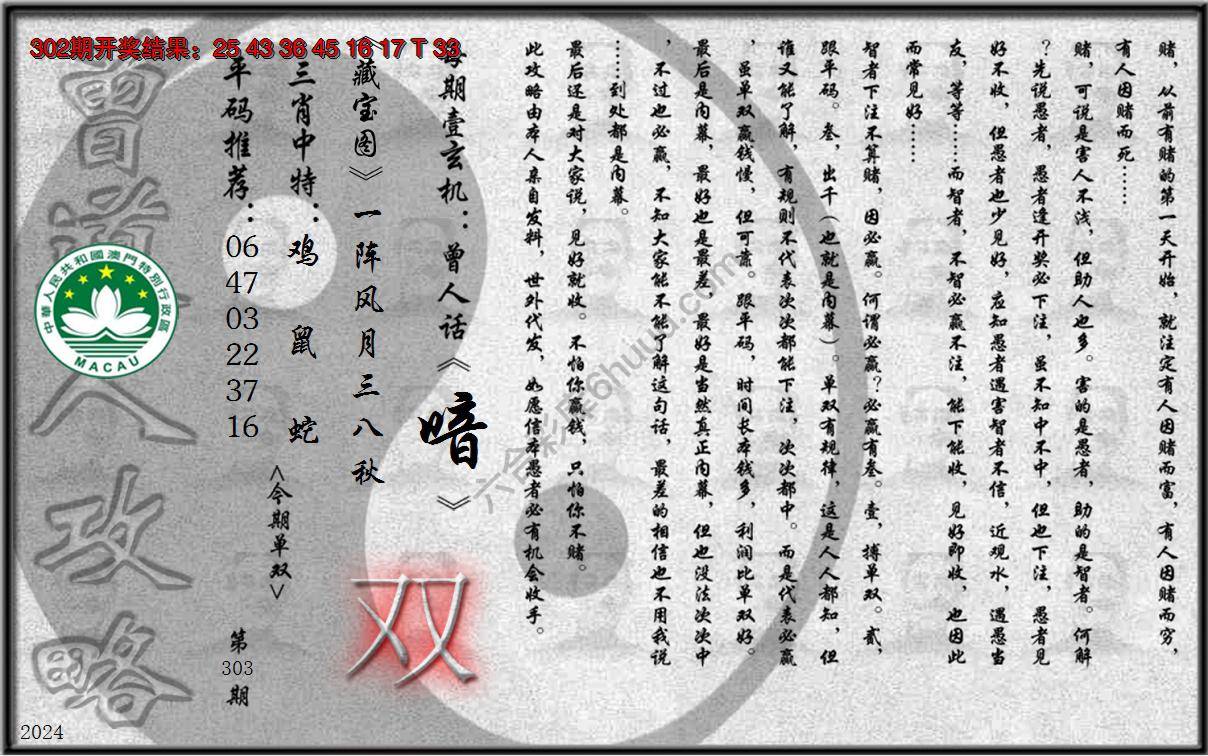 302期开奖结果：25 43 36 45 16 17 T 33
赌，从前有赌的第一天开始，就注定有人因赌而富，有人因赌而穷，
有人因赌而死……
赌，可说是害人不浅，但助人也多。害的是愚者，助的是智者。何解
？先说愚者，愚者逢开奖必下注，虽不知中不中，但也下注，愚者见
好不收，但愚者也少见好，应知愚者遇害智者不信，近观水，遇愚当
友，等等……而智者，不智必赢不注，能下能收，见好即收，也因此
而常见好……
智者下注不算赌，因必赢。何谓必赢？必赢有叁。壹，搏单双。贰，
跟平码。叁，出千（也就是内幕）。单双有规律，这是人人都知，但
谁又能了解，有规则不代表次次都能下注，次次都中。而是代表必赢
，虽单双赢钱慢，但可靠。跟平码，时间长本钱多，利润比单双好。
最后是内幕，最好也是最差，最好是当然真正内幕，但也没法次次中
，不过也必赢，不知大家能不能了解这句话，最差的相信也不用我说
……到处都是内幕。
最后还是对大家说，见好就收。不怕你赢钱，只怕你不赌。
此攻略由本人亲自发料，世外代发，如愿信本愚者必有机会收手。
每期壹玄机：曾人话《暗》
《藏宝图》一阵风月三八秋
三肖中特：鸡 鼠 蛇
<今期单双>
双
平码推荐：06 47 03 22 37 16
第303期
曾道人攻略
中華人民共和國澳門特別行政區
MACAU
六合彩库6huuu.com
2024